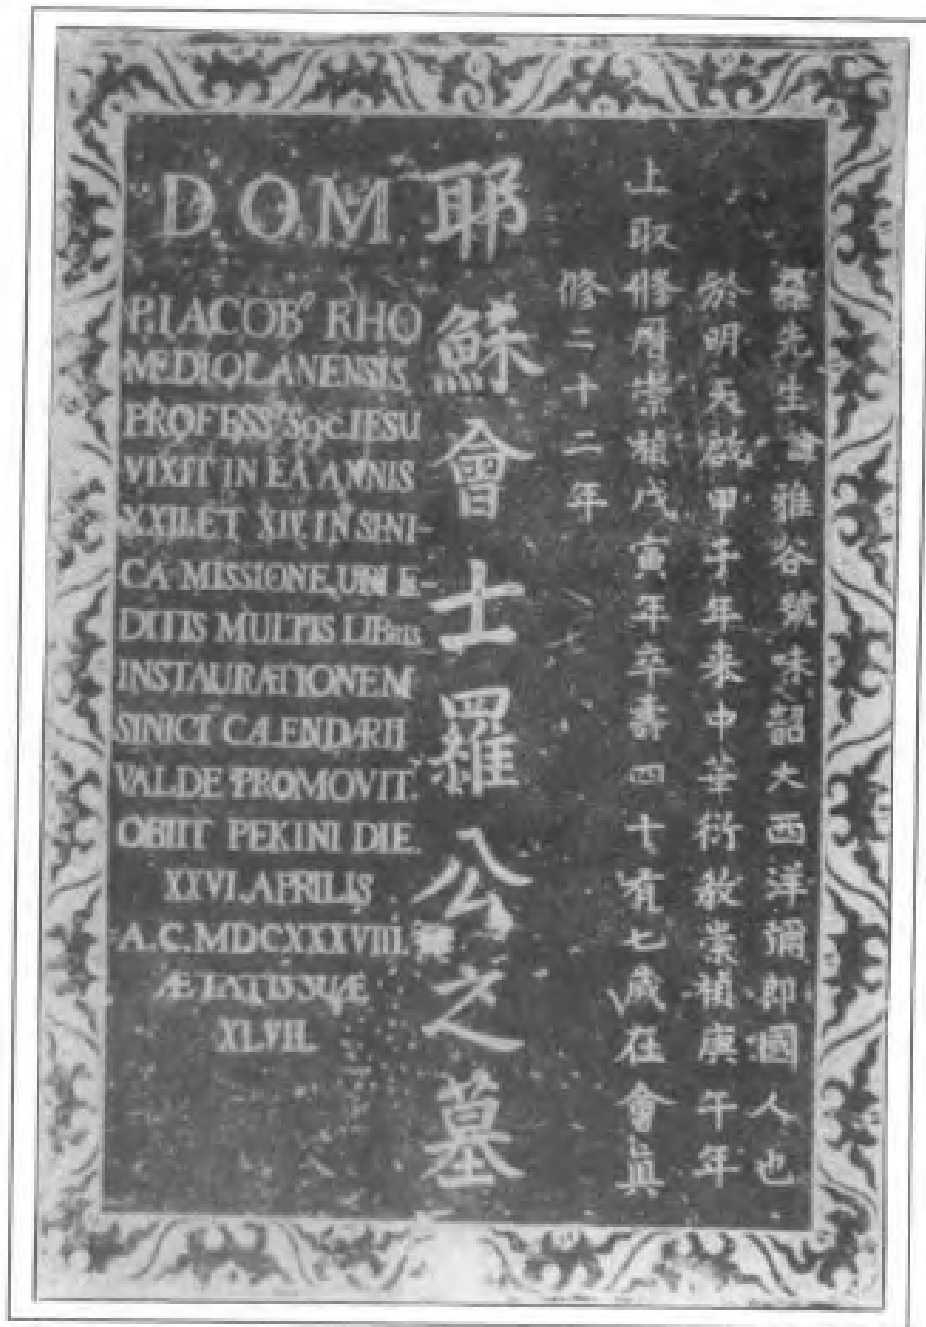 D.O.M.
P. IACOBº RHO
MEDIOLANENSIS
PROFESSº SOC. IESU
VIXIT IN EA ANNIS
XXII. ET XIV. IN SINI-
CA MISSIONE, UBI E-
DITIS MULTIS LIBRIS
INSTAURATIONEM
SINICI CALENDARII
VALDE PROMOVIT.
OBIIT PEKINI DIE.
XXVI. APRILIS
A.C. MDCXXXVIII.
ÆTATIS SUÆ
XLVII.
羅先生諱雅谷號味韶大西洋彌即國人也
於明天啟甲子年來中華衍教崇禎庚午年
上取修曆崇禎戊寅年卒壽四十有七歲在會眞
修二十二年
耶穌會士羅公之墓